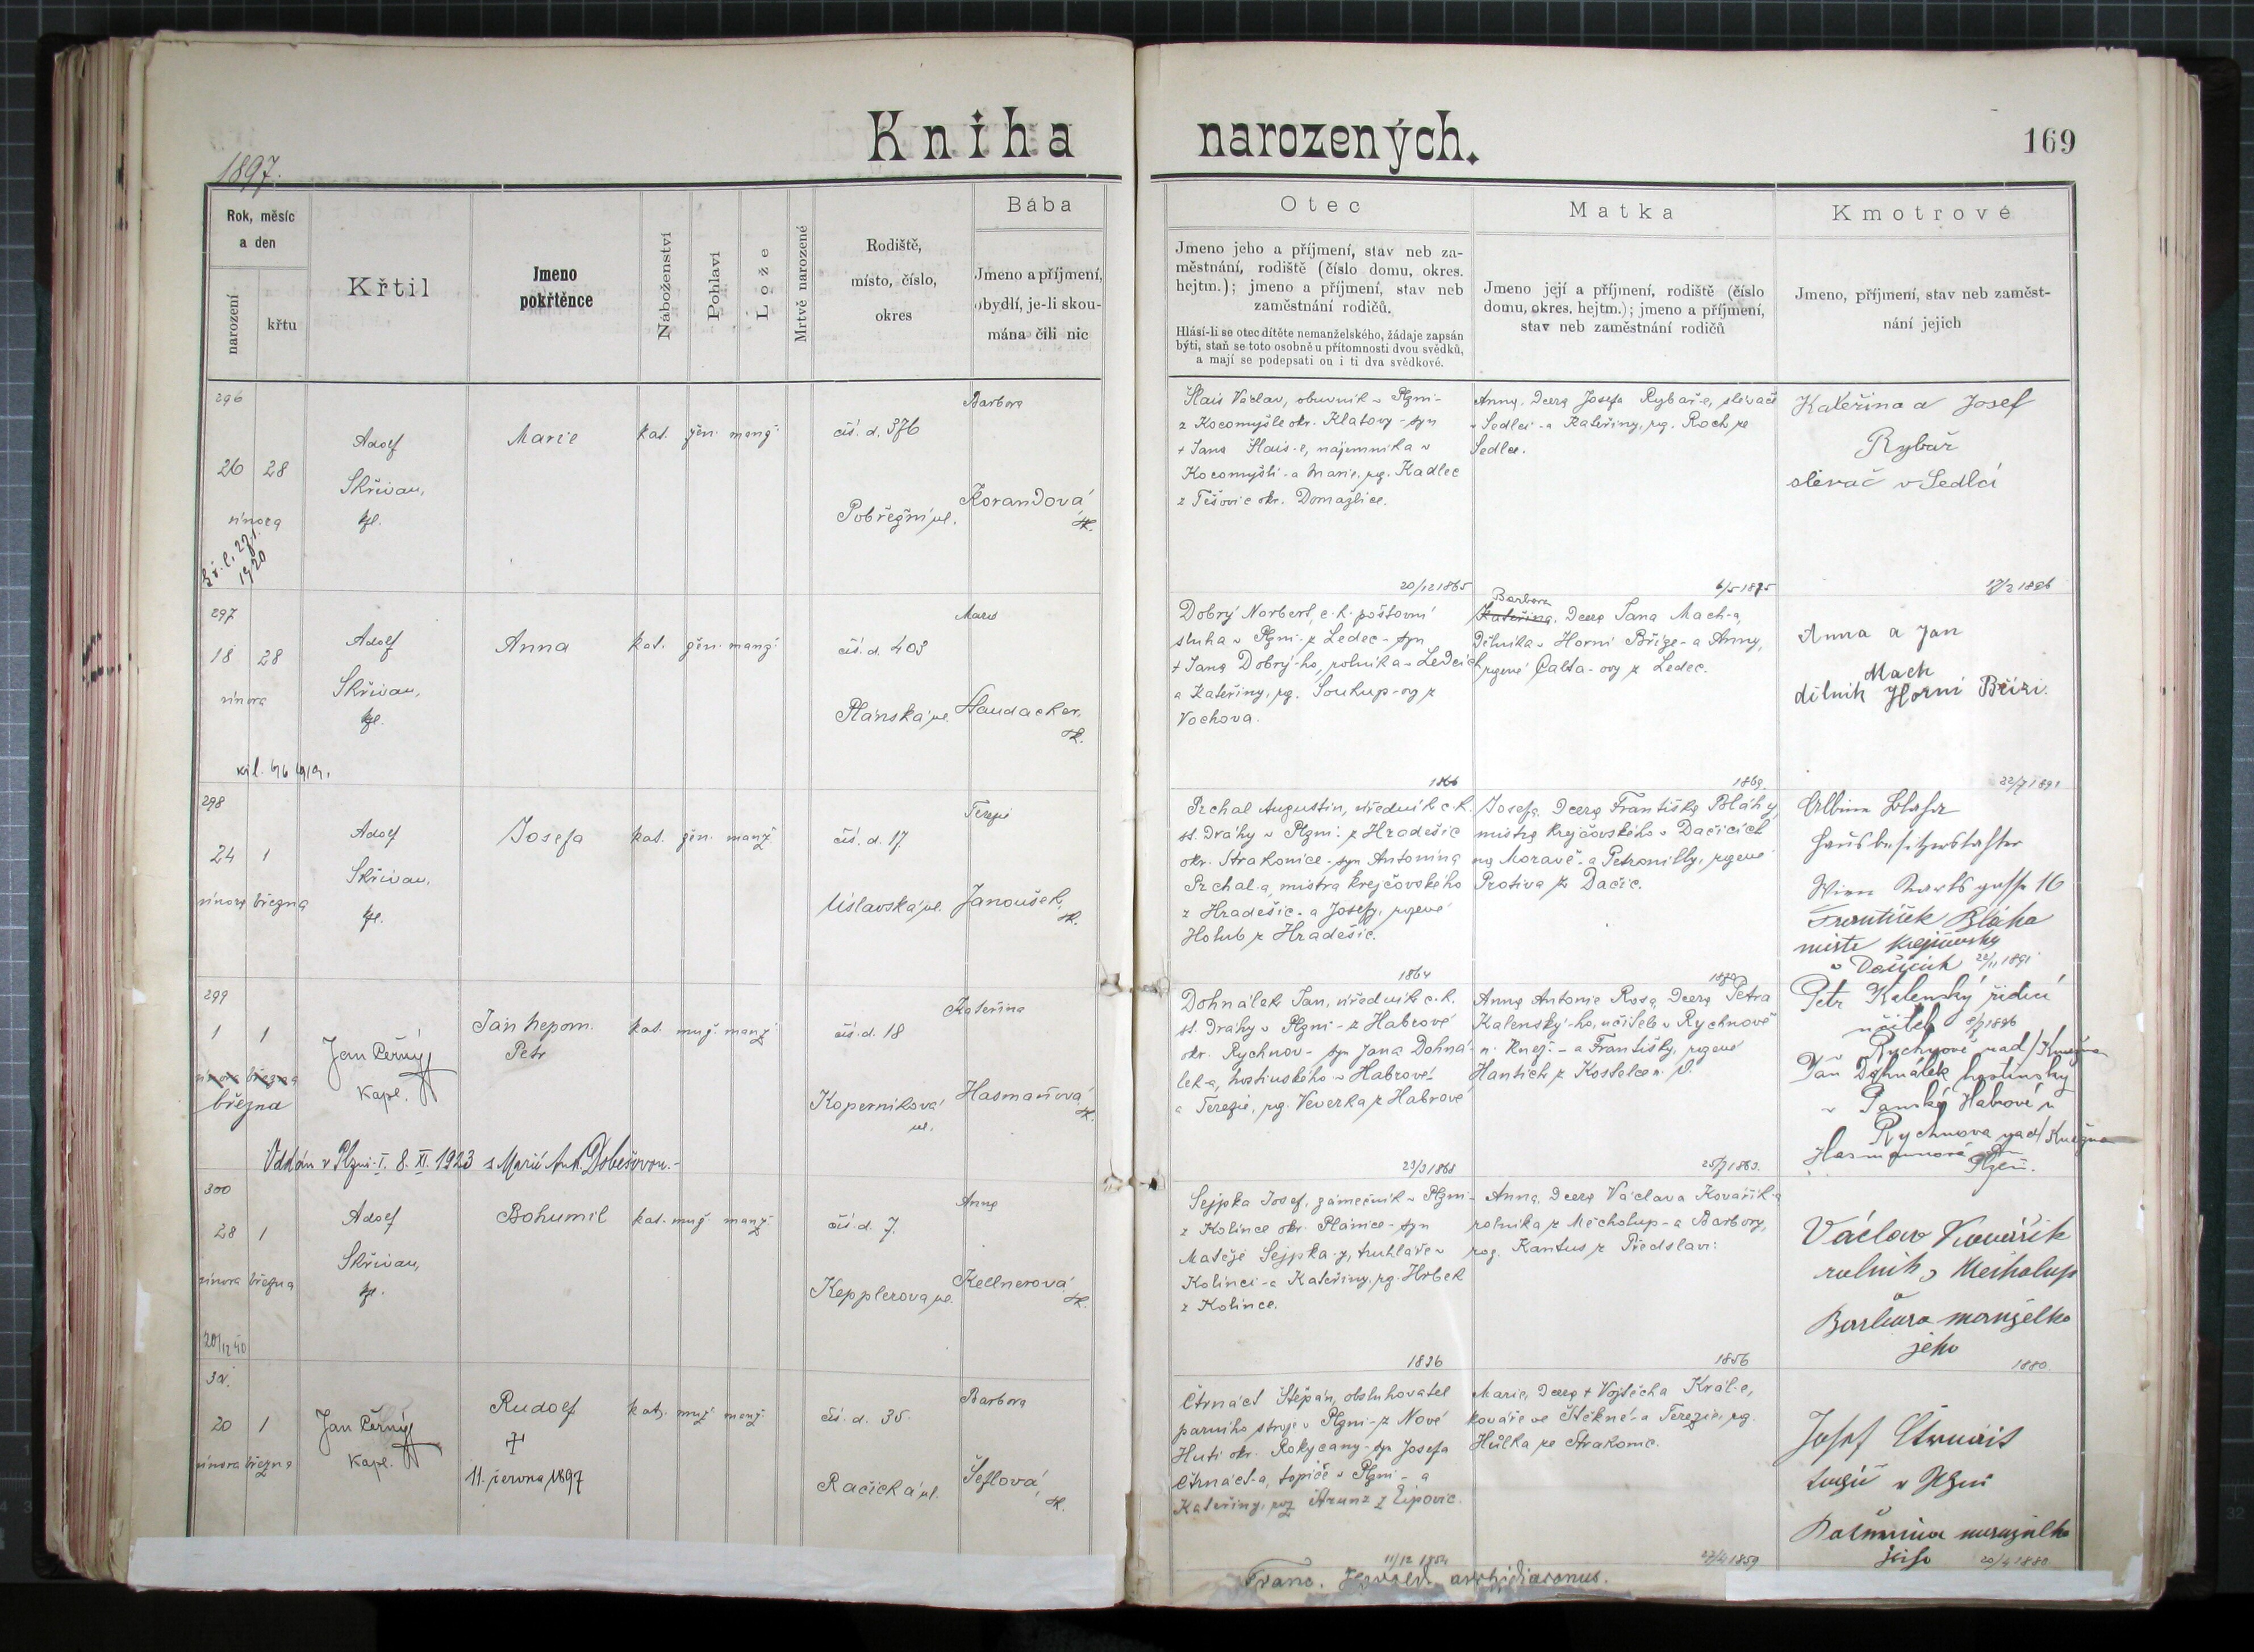 Kniha narozených.
169
1897.
Rok, měsíc
a den
narození
křtu
Křtil
Jmeno
pokřtěnce
Náboženství
Pohlaví
Lože
Mrtvě narozené
Rodiště,
místo, číslo,
okres
Bába
Jmeno a příjmení,
obydlí, je-li skou-
mána čili nic
Otec
Jmeno jeho a příjmení, stav neb za-
městnání, rodiště (číslo domu, okres.
hejtm.); jmeno a příjmení, stav neb
zaměstnání rodičů.
Hlásí-li se otec dítěte nemanželského, žádaje zapsán
býti, staň se toto osobně u přítomnosti dvou svědků,
a mají se podepsati on i ti dva svědkové.
Matka
Jmeno její a příjmení, rodiště (číslo
domu, okres. hejtm.); jmeno a příjmení,
stav neb zaměstnání rodičů
Kmotrové
Jmeno, příjmení, stav neb zaměst-
nání jejich
296
26 28
února
1920
Adolf
Skřivan,
kpl.
Marie
kat. žen. manž.
čís. d. 376
Pobřežní ul.
Barbora
Korandová
zk.
Slais Václav, obuvník v Plzni-
z Kocomyšle okr. Klatovy - syn
+ Jana Slais-e, nájemníka v
Kocomyšli - a Marie, rz. Kadlec
z Těšovic okr. Domažlice.
20/12 1865
Anna, dcera Josefa Rybář-e, slévače
v Sedlci - a Kateřiny, rz. Roch ze
Sedlce.
6/5 1875
Kateřina a Josef
Rybář
slévač v Sedlci
297
18 28
února
Adolf
Skřivan,
kpl.
Anna
kat. žen. manž.
čís. d. 403
Plánská ul.
Marie
Haudacker,
zk.
Dobrý Norbert, c. k. poštovní
sluha v Plzni - z Ledec - syn
+ Jana Dobrý-ho, rolníka v Ledcích
a Kateřiny, rz. Soukup-ov z
Vochova.
1866
Barbora
Kateřina, dcera Jana Mach-a,
dělníka v Horní Bříze - a Anny,
rozené Calta-ovy z Ledec.
1869
Anna a Jan
Mach
dělník Horní Břízi.
22/7 1891
298
24 1
února března
Adolf
Skřivan,
kpl.
Josefa
kat. žen. manž.
čís. d. 17
Úslavská ul.
Terezie
Janoušek,
zk.
Prchal Augustin, úředník c. k.
st. dráhy v Plzni - z Hradešic
okr. Strakonice - syn Antonína
Prchal-a, mistra krejčovského
z Hradešic - a Josefy, rozené
Holub z Hradešic.
1864
Josefa, dcera Františka Bláhy,
mistra krejčovského v Dačicích
na Moravě - a Petronilly, rozené
Protiva z Dačic.
1870
Albine Blaha
Hausbesitzerstochter
František Bláha
mistr krejčovský
v Dačicích 22/11 1891
299
1 1
února března
března
Jan Černý
kapl.
Jan Nepom.
Petr
kat. muž. manž.
čís. d. 18
Koperníkova
ul.
Kateřina
Hasmanová,
zk.
Oddán v Plzni-I. 8. XI. 1923 s Marií Ant. Dobešovou.-
Dohnálek Jan, úředník c. k.
st. dráhy v Plzni - z Habrové
okr. Rychnov - syn Jana Dohná-
lek-a, hostinského v Habrové -
a Terezie, rz. Veverka z Habrové
23/3 1868
Anna Antonie Rosa, dcera Petra
Kalenský-ho, učitele v Rychnově
n. Kněž. - a Františky, rozené
Hantich z Kostelce n. O.
Petr Kalenský řídící
učitel
v Rychnově nad/Kněžna
Jan Dohnálek hostinský
v Panské Habrové u
Rychnova nad/Kněžna
Hasmannová
Plzeň.
300
28 1
února března
20/12 40
Adolf
Skřivan,
kpl.
Bohumil
kat. muž. manž.
čís. d. 7.
Kepplerova ul.
Anna
Kellnerová,
zk.
Sejpka Josef, zámečník v Plzni -
z Kolince okr. Plánice - syn
Matěje Sejpka-y, truhláře v
Kolinci - a Kateřiny, rz. Hrbek
z Kolince.
Anna, dcera Václava Kovařík-a
rolníka z Měcholup - a Barbory,
roz. Kantus z Předslavi.
1856
Václav Kovařík
rolník z Mecholup
a
Barbora manželka
jeho
1880
301.
20 1
února března
Jan Černý
kapl.
Rudolf
+
11. června 1897
kat. muž manž.
čís. d. 35.
Račická ul.
Barbora
Šeflová,
zk.
Čtrnáct Štěpán, obsluhovatel
parního stroje v Plzni - z Nové
Huti okr. Rokycany - syn Josefa
Čtrnáct-a, topiče v Plzni - a
Kateřiny, roz. Strunz z Lipovic.
11/12 1854
Marie, dcera + Vojtěcha Král-e,
kováře ve Štěkně - a Terezie, rz.
Hůlka ze Strakonic.
27/4 1859
Josef Čtrnáct
topič v Plzni
Kateřina manželka
jeho 20/4 1880
Franc. archidiaconus.